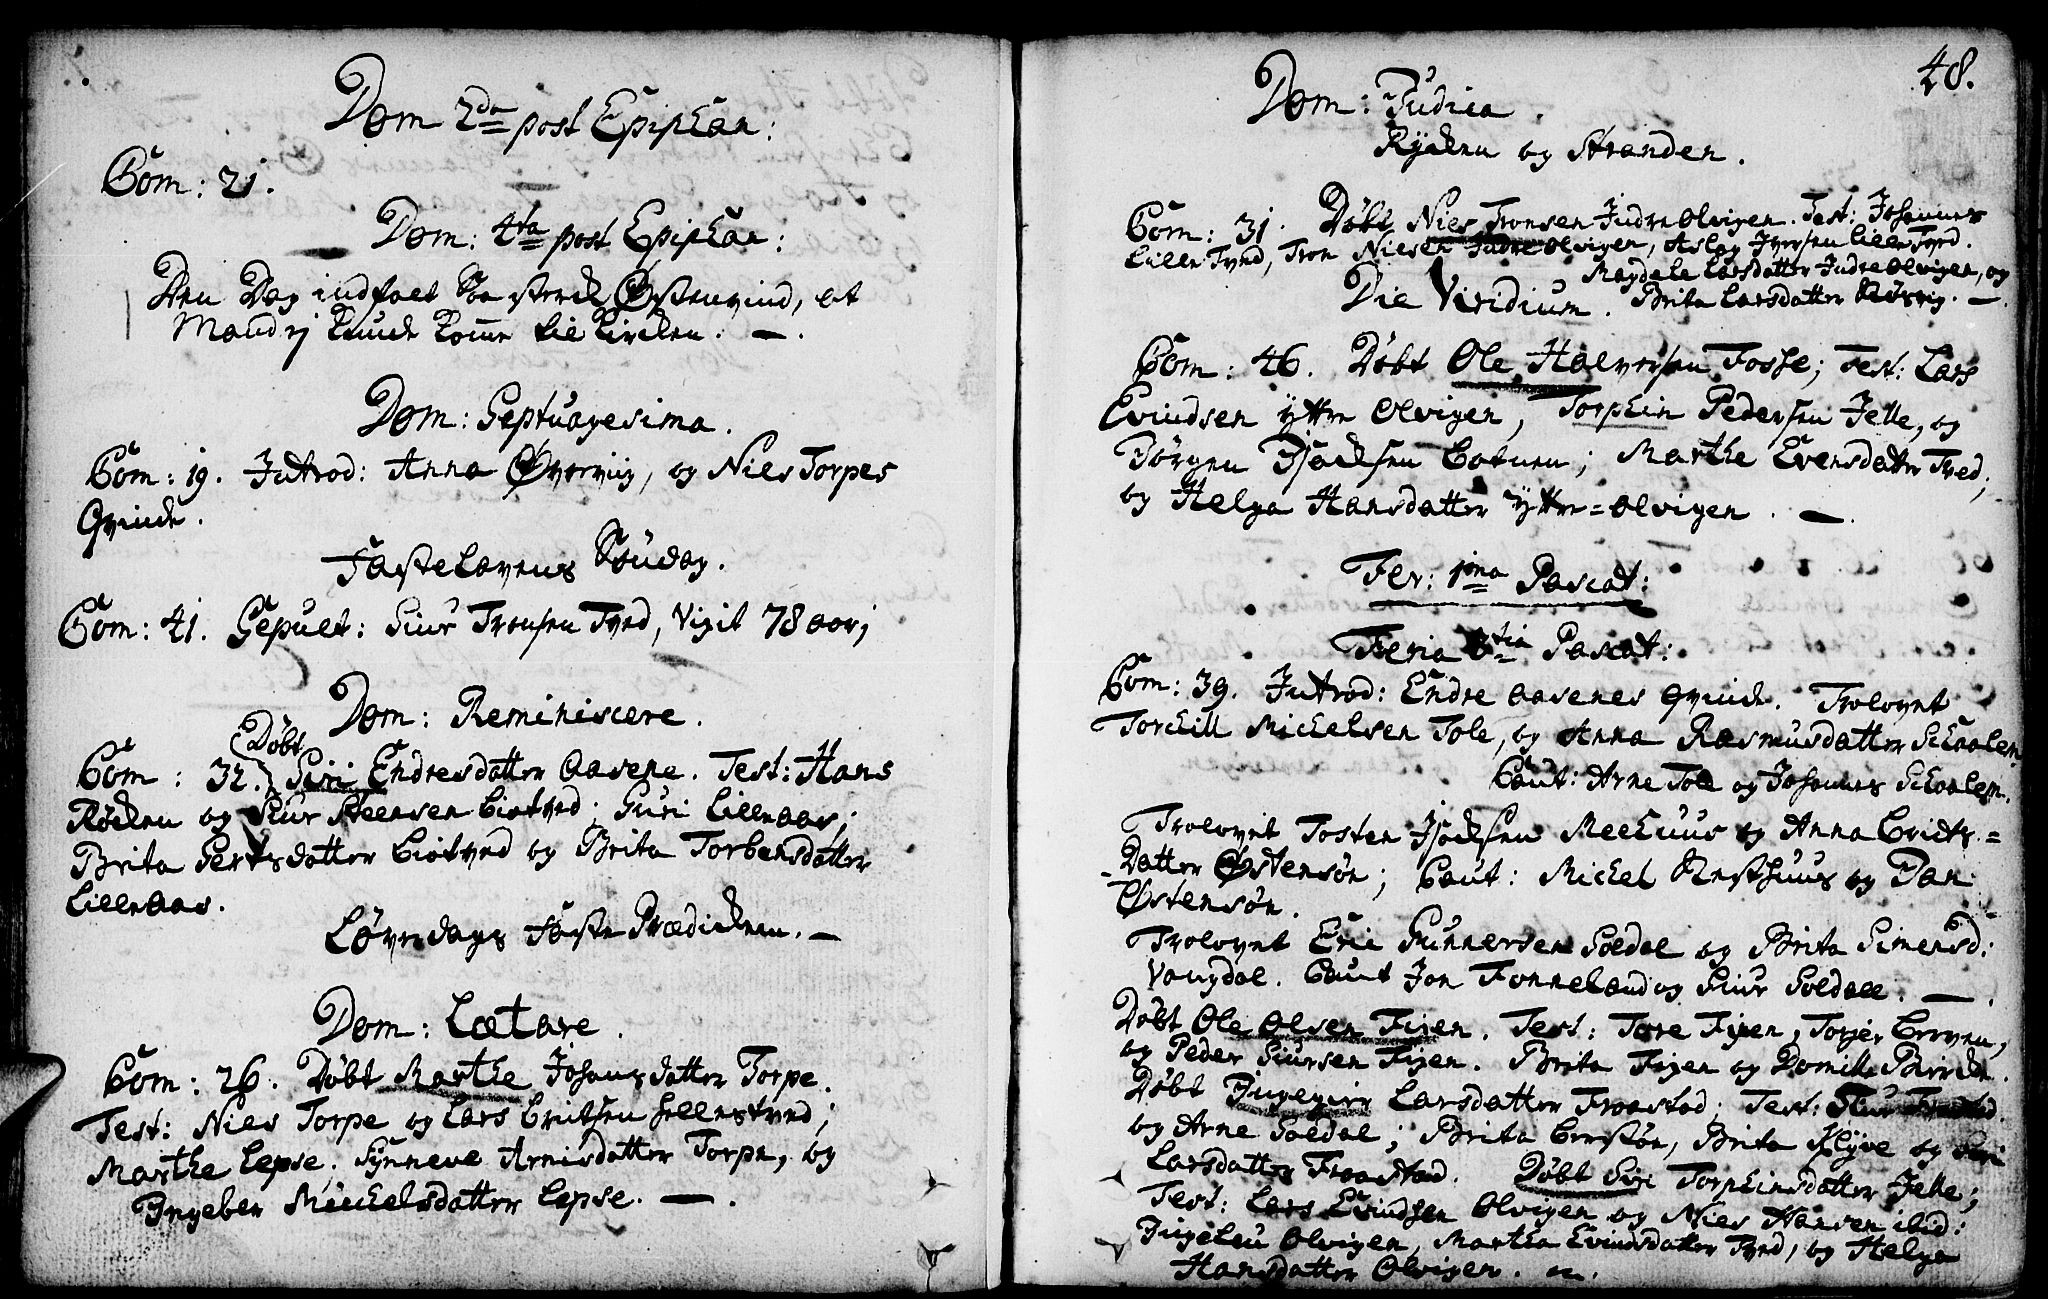 Dom 2da post Epiphan:
Com: 21.
Dom: 4ta post Epiphan:
Den Dag indfalt saa sterck Østenvind, at
Mand ej kunde komme til Kircken. —.
Dom: Septuagesima.
Com: 19. Introd: Anna Øvervig, og Niels Torpes
Qvinde.
Fastelavens Søndag.
Com: 41. Sepult: Siur Tronsen Tved, vixit 78 aar;
Dom: Reminiscere.
Døbt
Com: 32. Siri Endresdatter Aasene. Test: Hans
Røcken og Siur Steensen Giotved; Guri Lilleaas;
Brita Gertsdatter Giotved og Brita Torbensdatter
Lilleaas.
Løverdags Faste Prædicken. —
Dom: Lætare.
Com: 26. Døbt Marthe Johansdatter Torpe.
Test: Niels Torpe og Lars Knutsen Hellestved;
Marthe Lepse. Synneve Arnisdatter Torpe, og
Ingebor Mickelsdatter Lepse. —.
48.
Dom: Judica.
Rycken og Stranden.
Com: 31. Døbt Niels Tronsen Indre Olvigen. Test: Johannes
Lille Tved, Tron Nielsen Indre Olvigen, Aslag Iversen Lille Tved.
Magdele Larsdatter Indre Olvigen, og
Die Viridium. Brita Larsdatter —.
Com: 46. Døbt Ole Halversen Fosse; Test: Lars
Evindsen yttre Olvigen, Torphin Pedersen Jelle, og
Jørgen Isacksen Botnen; Marthe Evensdatter Tved;
og Helga Hansdatter yttre=Olvigen. —.
Fer: 1ma Pascat:
Feria 3tia Pascat:
Com: 39. Introd: Endre Aasenes Qvinde. Trolovet
Torckill Mickelsen Tole, og Anna Rasmusdatter Schaalen
Caut: Arne Tole og Johannes Schaalen.
Trolovet Tosten Isacksen Melhuus og Anna =
Datter Østensøn; Caut: Mickel og Jan
Østensøn.
Trolovet Eric Gunnersen Soldal og Brita Simensd:
Vangdal. Caut Jon Fonneland og Siur Soldall. —.
Døbt Ole Olsen Fixen. Test: Tore Fixen, Torjer Berven,
og Peder Siursen Fixen. Brita Fixen og
Døbt Ingegier Larsdatter Fraastad; Test: Siur Fraastad
og Arne Soldal; Brita Brestøn, Brita Klyve og Siri
Larsdatter Fraastad. Døbt Siri Torphinsdatter Jelle;
Test: Lars Evindsen Olvigen og Niels Hansen ibid:
Ingeleu Olvigen, Martha Evindsdatter Tved, og Helga
Hansdatter Olvigen.